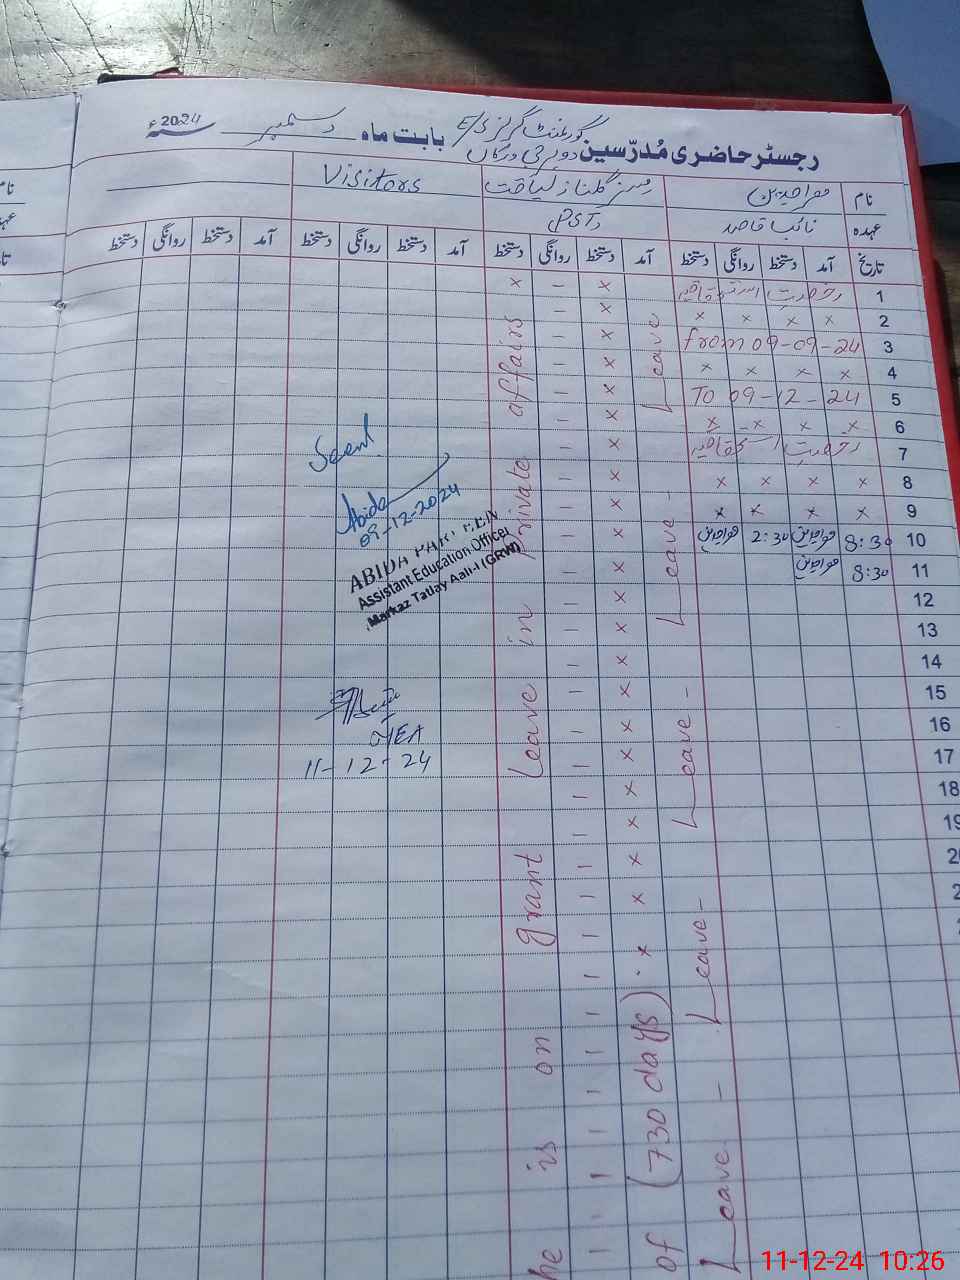 رجسٹر حاضری مُدرّسین گورنمنٹ گرلز بابت ماہ دسمبر 2024ء
نام
مسز گلناز لیاقت
Visitors
عہدہ نائب قاصد
PST
تاریخ آمد دستخط روانگی دستخط آمد دستخط روانگی دستخط آمد دستخط روانگی دستخط آمد دستخط روانگی دستخط
1 رخصت
2 x x x x
3 from 09-09-24
4 x x x x
5 To 09-12-24
6 x x x x
7 رخصت
8 x x x x
9 x x x x
10 8:30 2:30
11 8:30
12
13
14
15
16
17
18
19
Leave Leave - Leave - Leave - Leave -
of (730 days)
he is on grant leave in private affairs
Seen
Abida
09-12-2024
ABIDA
Assistant Education Officer
Markaz Tatlay Aali-I (GRW)
MEA
11-12-24
نام
11-12-24 10:26